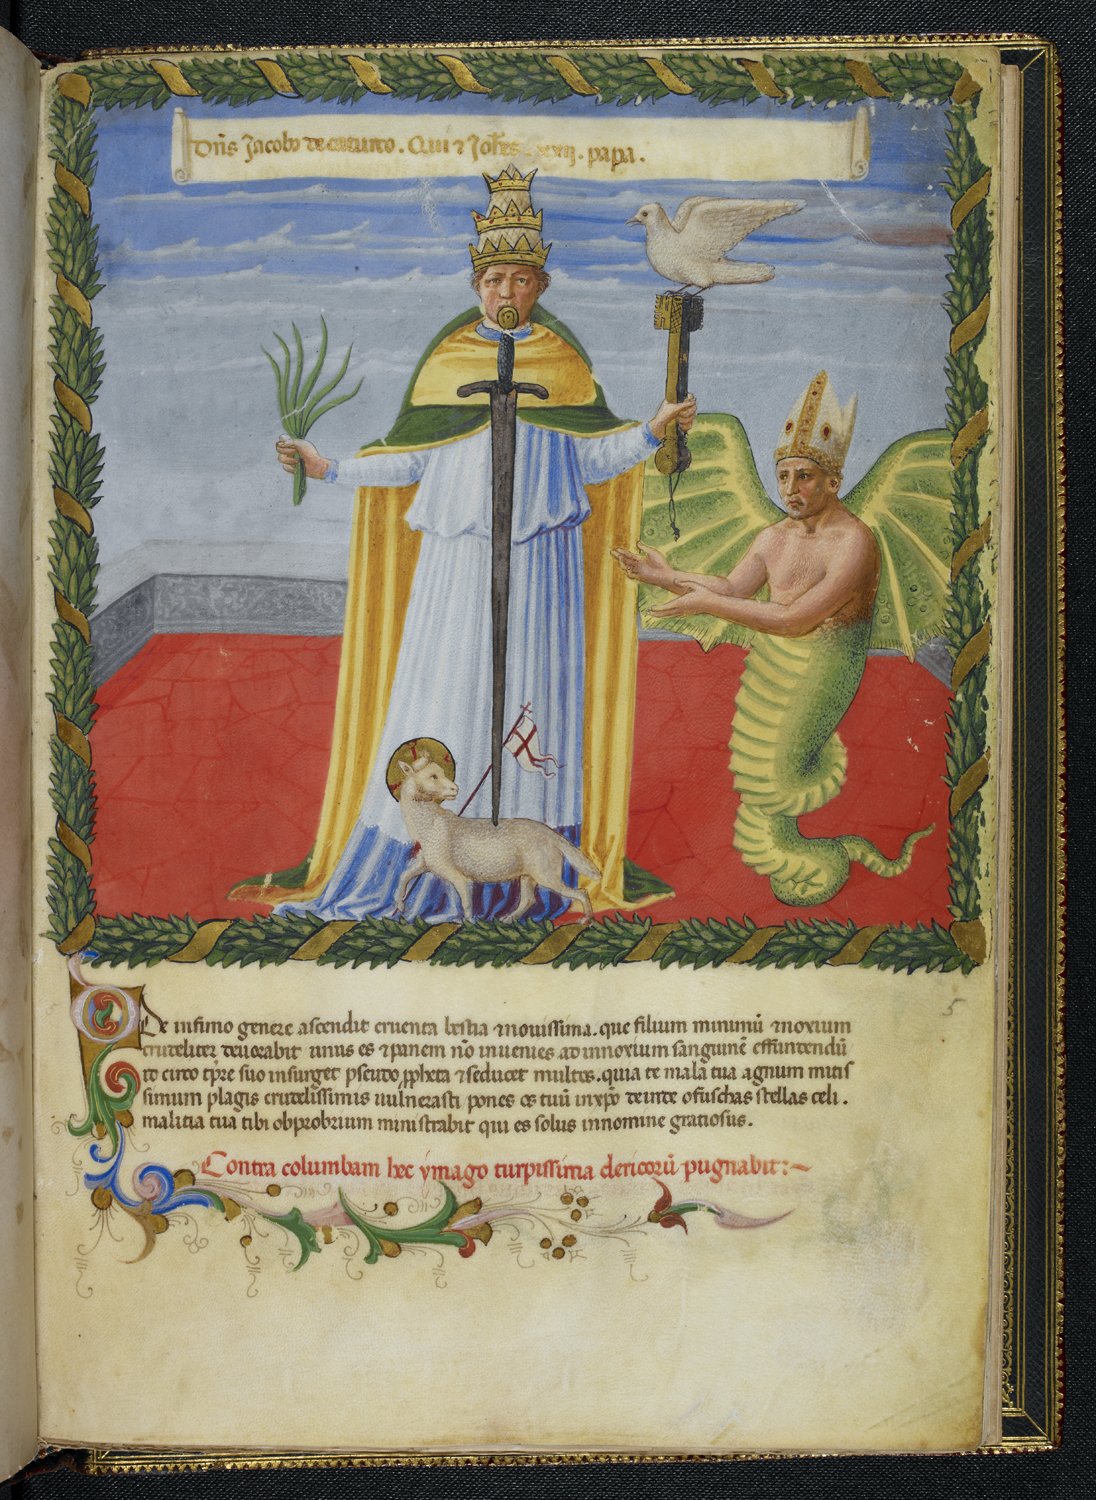 Dn̄s Jacobo de caturco. Qui ⁊ Joh̄es xxij. papa.
De infimo genere ascendit cruenta bestia ⁊ nouissima. que filium minimū ⁊ noxium
crudeliter deuorabit unus es ⁊ panem nō inuenies ad innoxium sanguinē effundendū
to circo tp̄re suo insurget pseudo ꝓpheta ⁊ seducet multos. quia te mala tua agnum mitis
simum plagis crudelissimis uulnerasti pones os tuū in xp̄o deinde ofūschas stellas celi.
malitia tua tibi obprobrium ministrabit qui es solus in nomine gratiosus.
Contra columbam hec ymago turpissima clericorū pugnabit:~
5